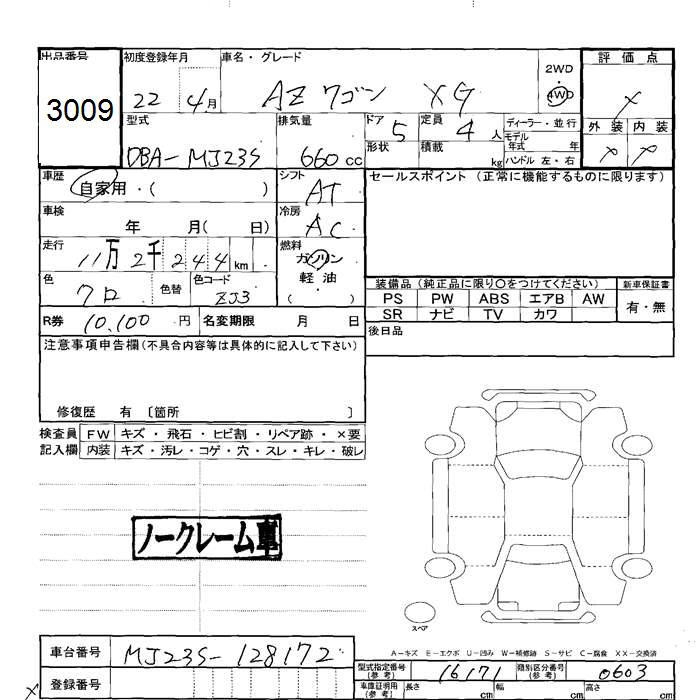 出品番号 初度登録年月 車名・グレード 2WD 評価点
3009 22 4月 AZ ワゴン XG ・4WD ×
型式 排気量 ドア 5 定員 4人 ディーラー・並行 外装 内装
DBA-MJ23S 660cc 形状 積載 kg モデル年式 年 × ×
ハンドル 左・右
車歴 自家用・( ) シフト AT セールスポイント (正常に機能するものに限ります)
車検 年 月( 日) 冷房 AC
走行 11万2千244km 燃料 ガソリン
軽油
( )
色 クロ 色替 色コード ZJ3
装備品 (純正品に限り○をつけてください) 新車保証書
PS PW ABS エアB AW 有・無
SR ナビ TV カワ
R券 10,100円 名変期限 月 日 後日品
注意事項申告欄(不具合内容等は具体的に記入して下さい)
修復歴 有 〔箇所 〕
検査員 FW キズ・飛石・ヒビ割・リペア跡・×要
記入欄 内装 キズ・汚レ・コゲ・穴・スレ・キレ・破レ
ノークレーム車
スペア
A-キズ E-エクボ U-凹み W-補修跡 S-サビ C-腐食 XX-交換済
車台番号 MJ23S-128172 型式指定番号(参考) 16171 類別区分番号(参考) 0603
× 登録番号 車庫証明用(参考) 長さ cm 幅 cm 高さ cm